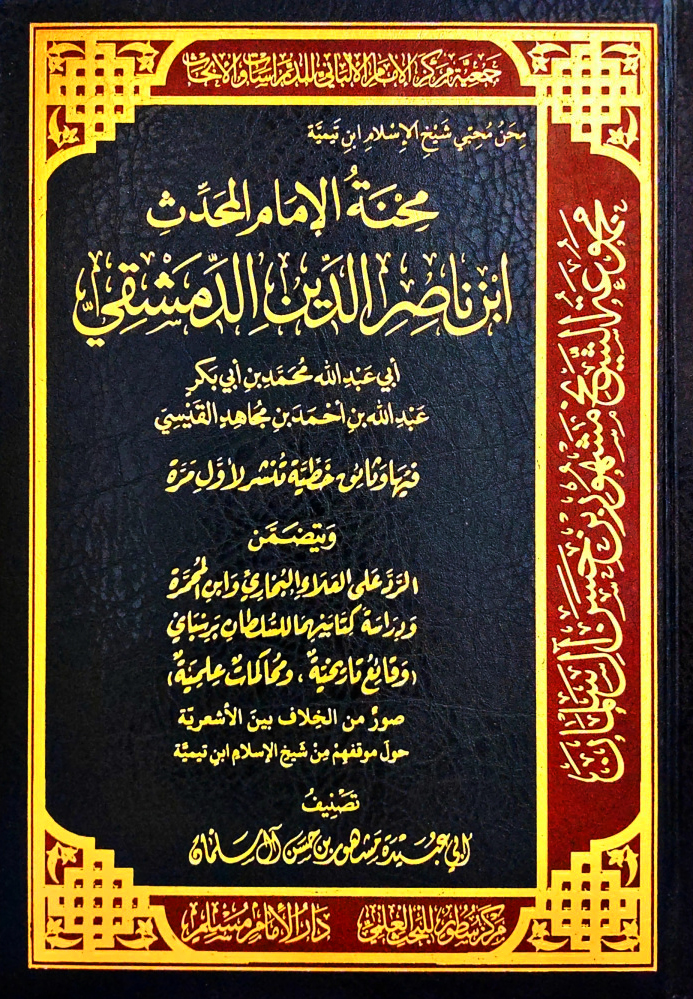 جمعية مركز الإمام الألباني للدراسات والأبحاث
مِحَنُ مُحِبِّي شَيْخِ الإِسْلَامِ ابنِ تَيْمِيَّة
مِحْنَةُ الإِمَامِ المُحَدِّثِ
ابْنِ نَاصِرِ الدِّينِ الدِّمَشْقِيِّ
أبي عَبْدِ اللهِ مُحَمَّدِ بنِ أبي بَكرٍ
عَبْدِ اللهِ بنِ أحْمَدَ بنِ مُجَاهِدِ القَيْسِيِّ
فيها وثائق خَطِّيَّة تُنشر لأوَّل مرَّة
وَيَتَضَمَّن
الرَّدّ عَلى العَلاءِ البُخَاريِّ وَابنِ المُحَمَّرَة
وَدِرَاسَة كِتَابَيْهِمَا للسُّلطانِ بَرسْبَاي
(وَقَائِعُ تَارِيخيَّةٌ، وَمُحَاكَمَاتٌ عِلميَّةٌ)
صورٌ من الخِلاف بينَ الأشعريَّة
حولَ موقفهِمْ مِنْ شَيخِ الإسلامِ ابنِ تيميَّة
تَصْنِيفُ
أبي عُبَيْدَة مَشهُور بن حَسَن آل سَلمَان
مجموعة الشيخ مشهور بن حسن آل سلمان
مركز سطور للبحث العلمي
دار الإمام مسلم